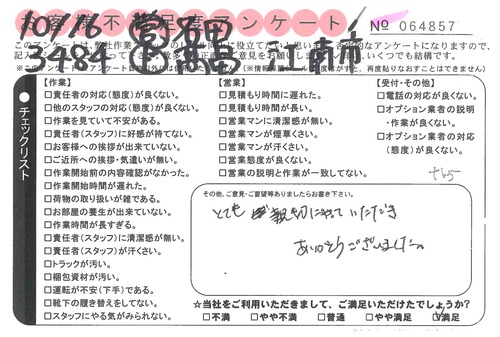 お客様不満足度アンケート
No 064857
10/16
3484
このアンケートは、弊社作業スタッフの
※このアンケート
チェックリスト
【作業】
□責任者の対応(態度)が良くない。
□他のスタッフの対応(態度)が良くない。
□作業を見ていて不安がある。
□責任者(スタッフ)に好感が持てない。
□お客様への挨拶が出来ていない。
□ご近所への挨拶・気遣いが無い。
□作業開始前の内容確認がなかった。
□作業開始時間が遅れた。
□荷物の取り扱いが雑である。
□お部屋の養生が出来ていない。
□作業時間が長すぎる。
□責任者(スタッフ)に清潔感が無い。
□責任者(スタッフ)が汗くさい。
□トラックが汚い。
□梱包資材が汚い。
□運転が不安(下手)である。
□靴下の履き替えをしてない。
□スタッフにやる気がみられない。
【営業】
□見積もり時間に遅れた。
□見積もり時間が長い。
□営業マンに清潔感が無い。
□営業マンが煙草くさい。
□営業マンが汗くさい。
□営業態度が良くない。
□営業の説明と作業が一致してない。
【受付・その他】
□電話の対応が良くない。
□オプション業者の説明
・作業が良くない。
□オプション業者の対応
(態度)が良くない。
その他、ご意見・ご要望等ありましたらお書き下さい。
とても 親切にやって いただき
ありがとうございました。
☆当社をご利用いただきまして、ご満足いただけたでしょうか?
□不満 □やや不満 □普通 □やや満足 □満足